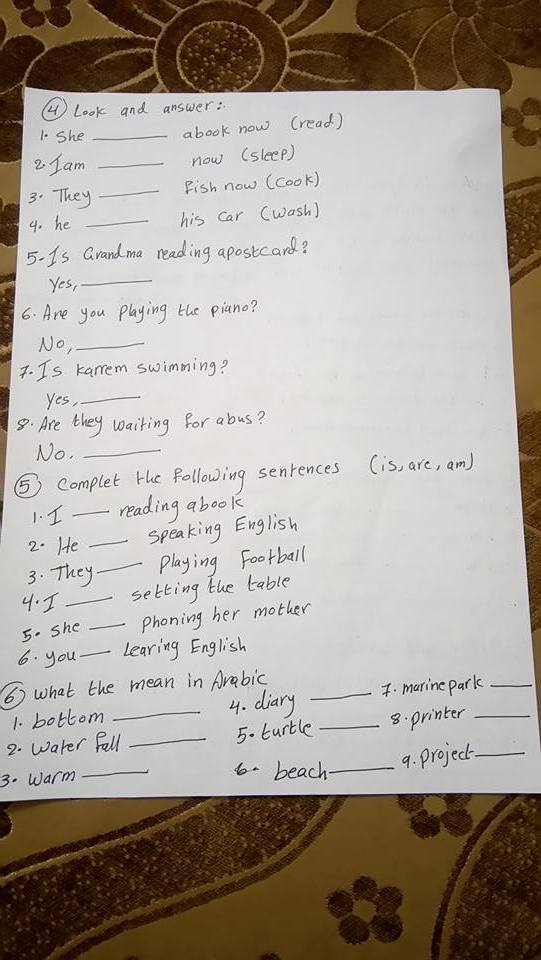 4 Look and answer:.
1. She ____ abook now (read)
2. I am ____ now (sleep)
3. They ____ fish now (Cook)
4. he ____ his car (wash)
5-Is Grandma reading apostcard?
Yes, ____
6. Are you playing the piano?
No, ____
7. Is Karrem swimming?
Yes, ____
8. Are they waiting for abus?
No. ____
5 Complet the following sentences (is, are, am)
1. I ____ reading abook
2. He ____ speaking English
3. They ____ playing Football
4. I ____ setting the table
5. She ____ phoning her mother
6. you ____ learing English
6 what the mean in Arabic
1. bottom ____ 4. diary ____ 7. marine park ____
2. water fall ____ 5. turtle ____ 8. printer ____
3. warm ____ 6. beach ____ 9. project ____